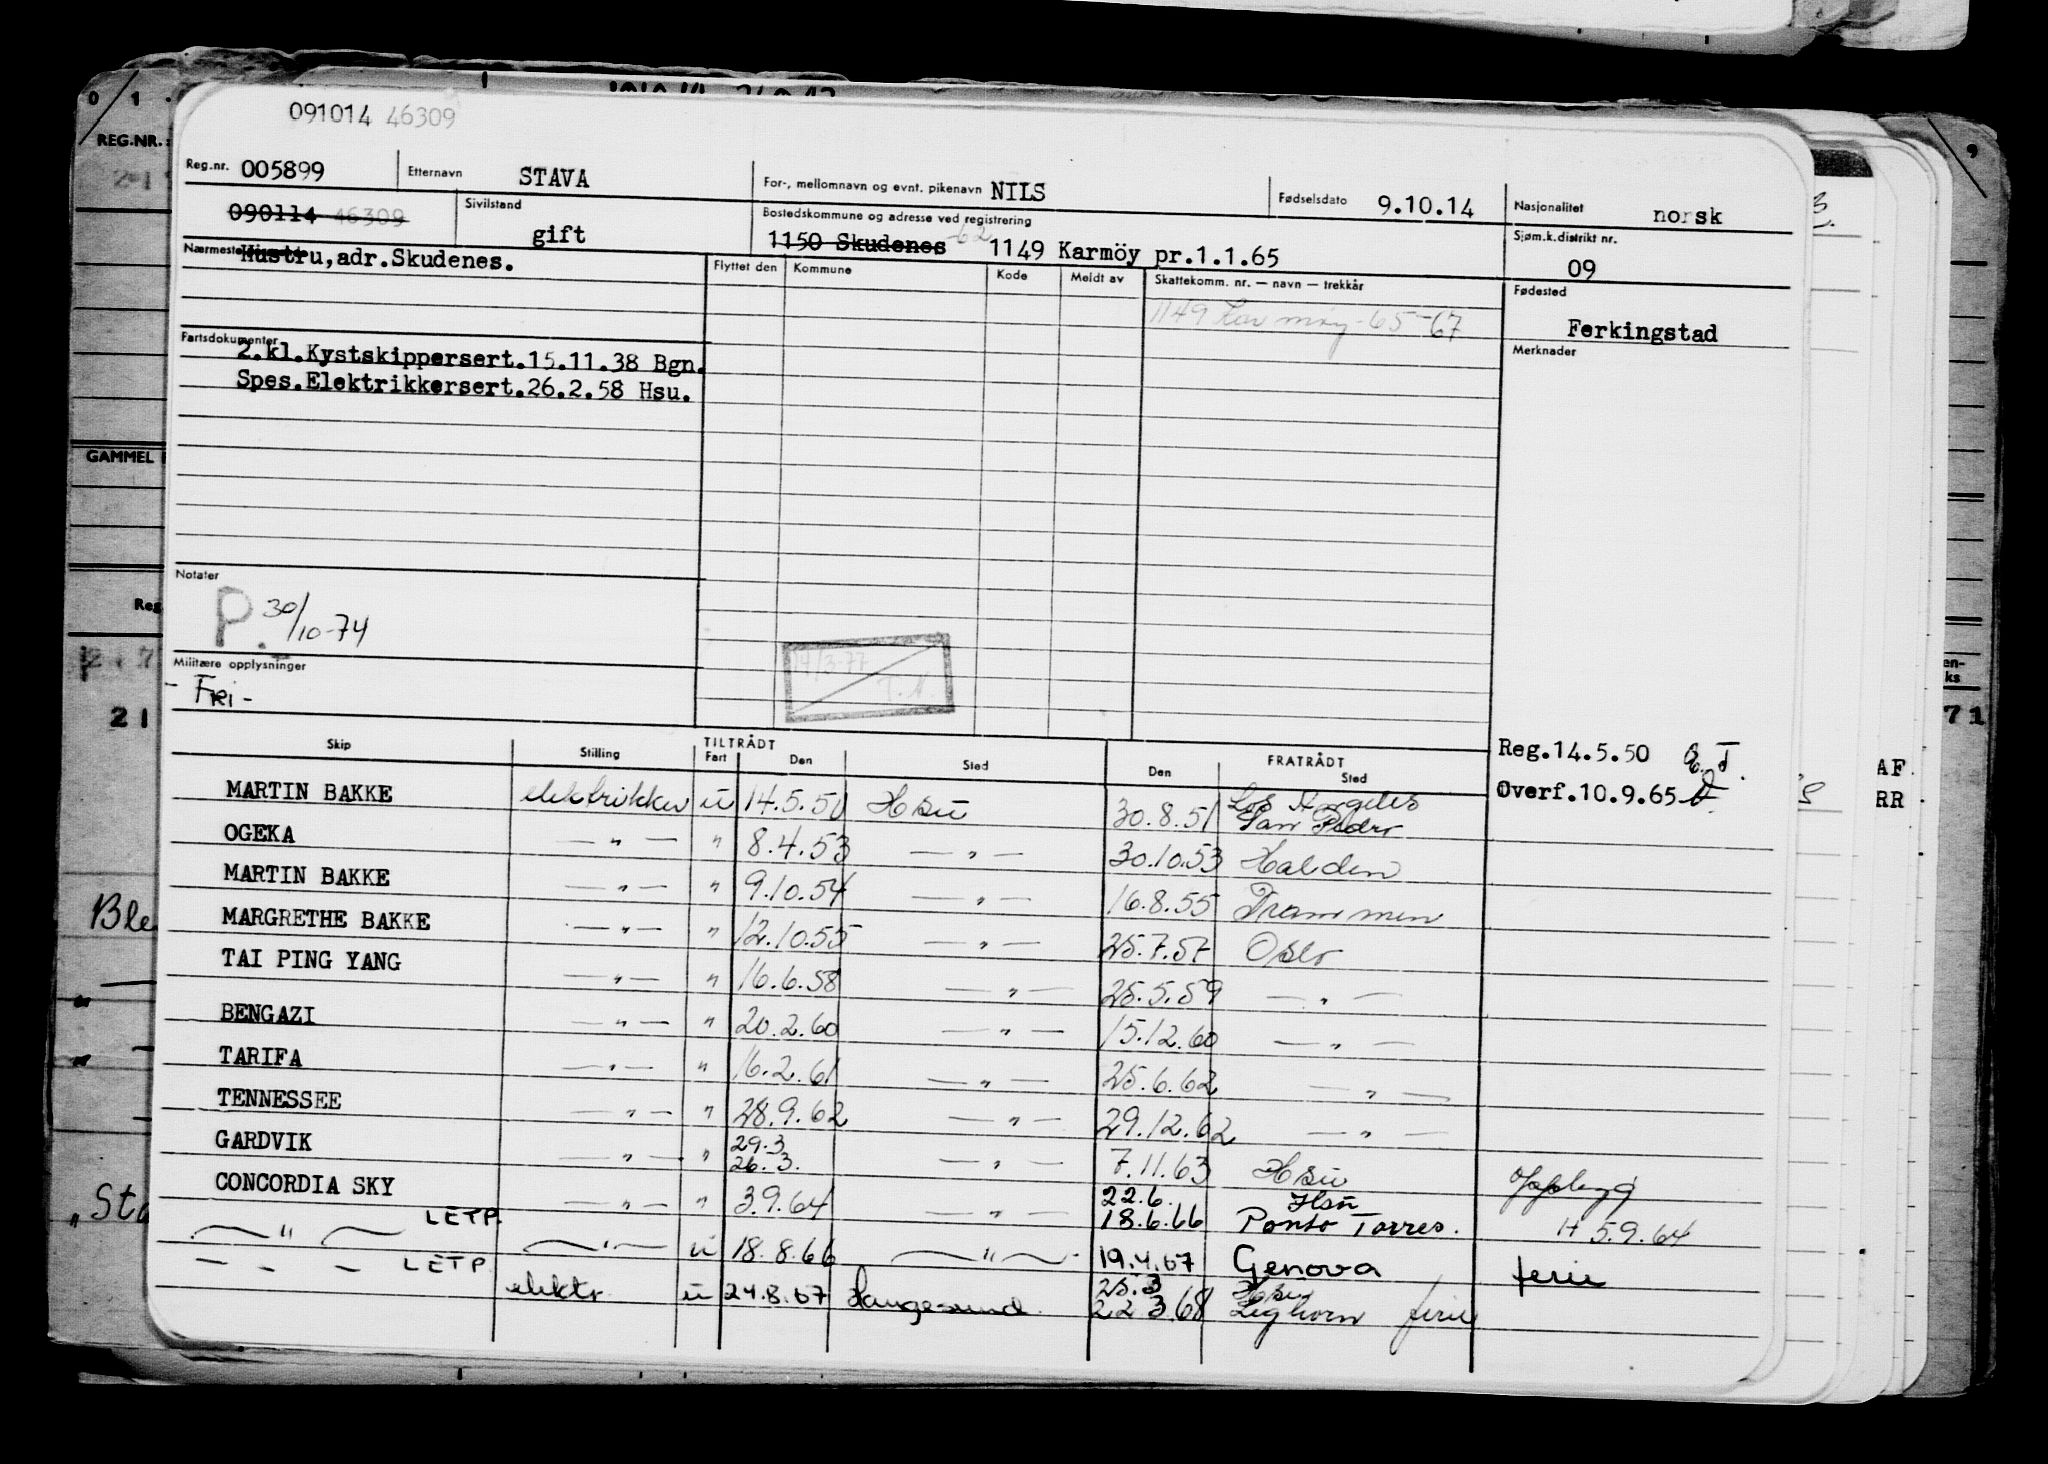 091014 46309
Reg.nr. 005899 Etternavn STAVA For-, mellomnavn og evnt. pikenavn NILS Fødselsdato 9.10.14 Nasjonalitet norsk
090114 46309 Sivilstand gift Bostedskommune og adresse ved registrering 1150 Skudenes -62 1149 Karmöy pr.1.1.65 Sjøm.k.distrikt nr. 09
Nærmeste Hustru,adr.Skudenes. Flyttet den Kommune Kode Meldt av Skattekomm. nr. — navn — trekkår Fødested
1149 Karmöy-65-67 Ferkingstad
Fartsdokumenter Merknader
2.kl.Kystskippersert.15.11.38 Bgn.
Spes.Elektrikkersert.26.2.58 Hsu.
Notater
P. 30/10-74
Militære opplysninger 14/3-77 T.N.
- Fri -
Reg.14.5.50
Overf.10.9.65
Skip Stilling TILTRÅDT Fart Den Sted Den FRATRÅDT Sted
MARTIN BAKKE elektrikker u 14.5.51 Hsu 30.8.51 Los Angeles San Pedro
OGEKA — " — " 8.4.53 — " — 30.10.53 Halden
MARTIN BAKKE — " — " 9.10.54 — " — 16.8.55 Drammen
MARGRETHE BAKKE — " — " 12.10.55 — " — 25.7.57 Oslo
TAI PING YANG — " — " 16.6.58 — " — 25.5.59 — " —
BENGAZI — " — " 20.2.60 — " — 15.12.60 — " —
TARIFA — " — " 16.2.61 — " — 25.6.62 — " —
TENNESSEE — " — " 28.9.62 — " — 29.12.62 — " —
GARDVIK — " — " 29.3 26.3. — " — 7.11.63 Hsu
CONCORDIA SKY — " — " 3.9.64 — " — 22.6. 18.6.66 Hsu Ponto Torres. H 5.9.64
— " — LETP — " — u 18.8.66 — " — 19.4.67 Genova ferie
— - — LETP elektr. u 24.8.67 Haugesund 25.3 22 3.68 Hsu Leghorn ferie
REG.NR.:
GAMMEL
Reg
21
71
AF
RR
Ble